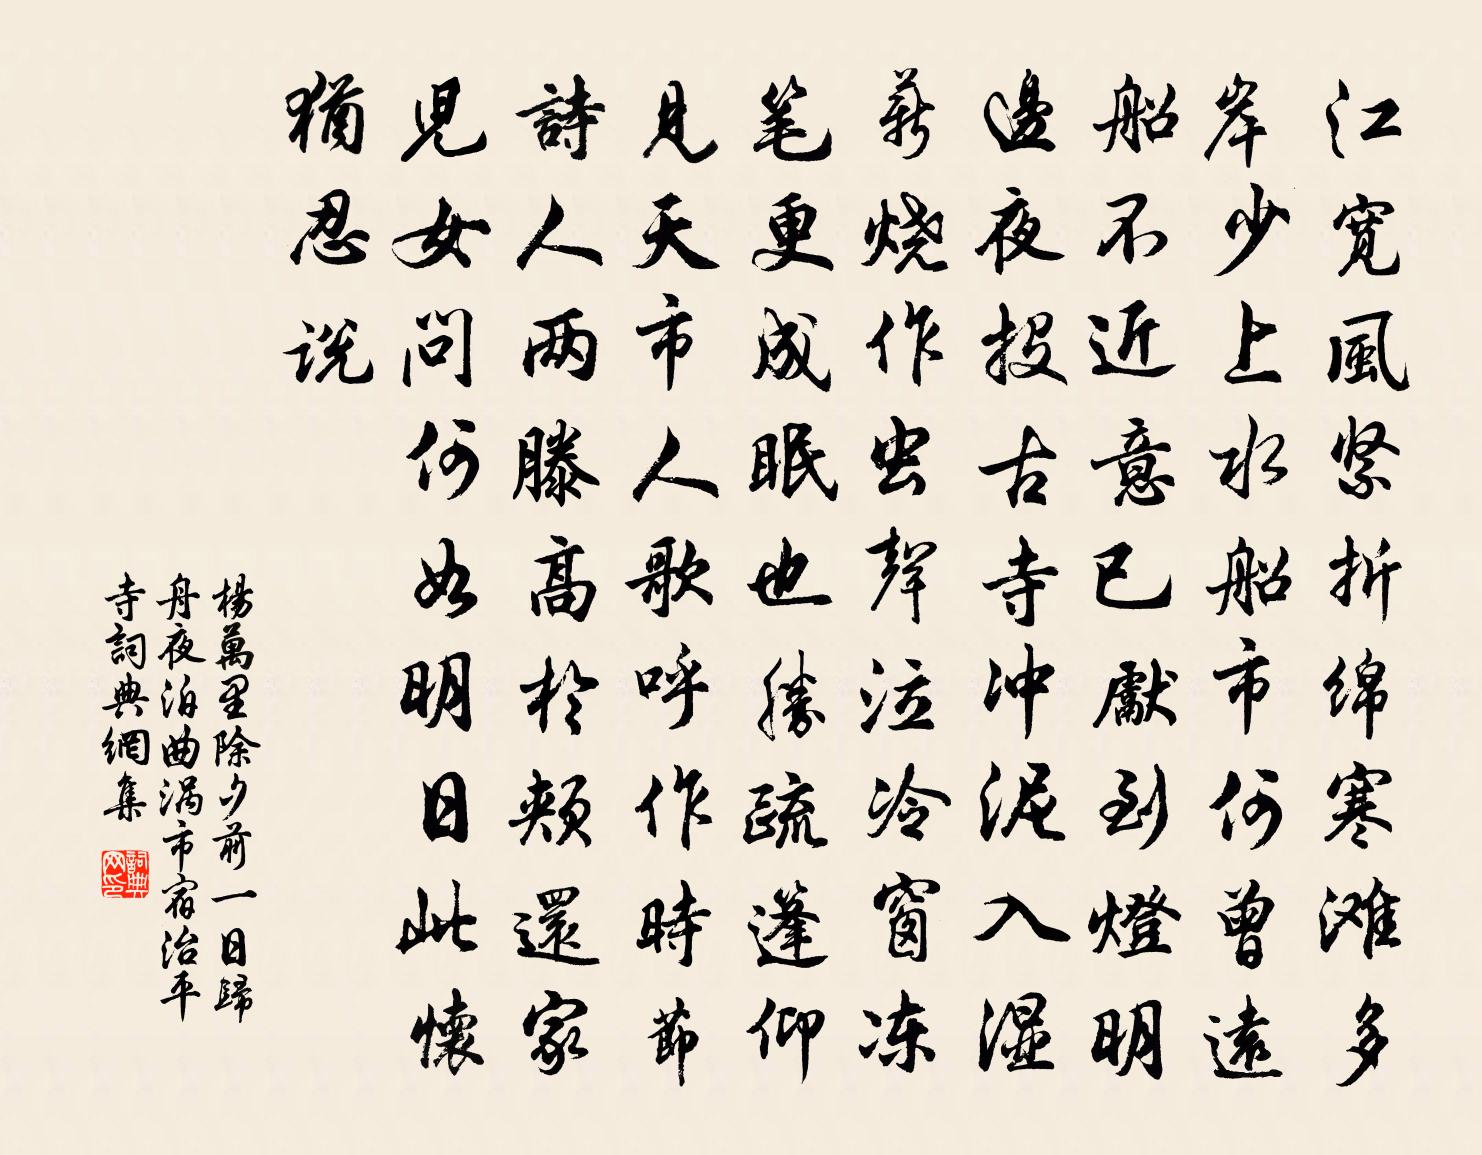 江寬風紧折绵寒滩多
岸少上水船市何曾遠
船不近意已獻到燈明
邊夜投古寺冲泥入湿
薪烧作虫聲泣冷窗冻
笔更成眠也勝疏蓬仰
見天市人歌呼作時節
詩人两膝高於頰還家
兒女問何如明日此懷
猶忍说
楊萬里除夕前一日歸
舟夜泊曲涡市宿治平
寺詞典網集
詞典网印